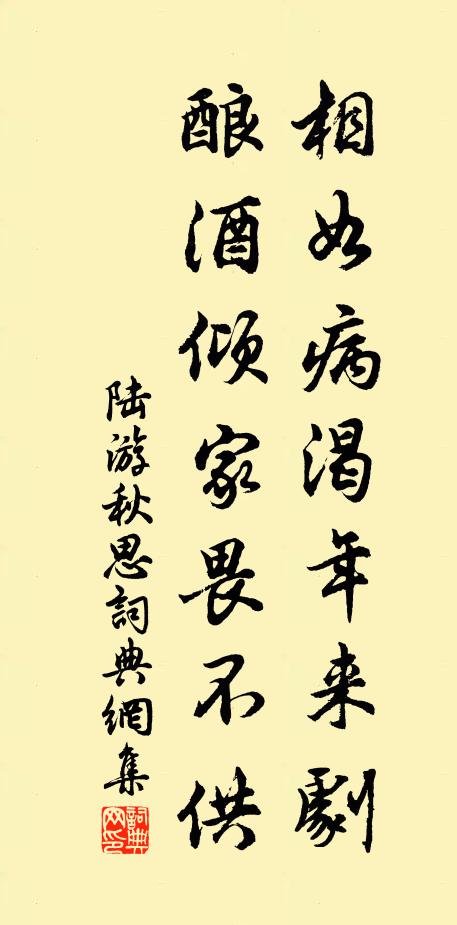 相如病渴年来劇
酿酒倾家畏不供
陆游秋思詞典網集
詞典網印